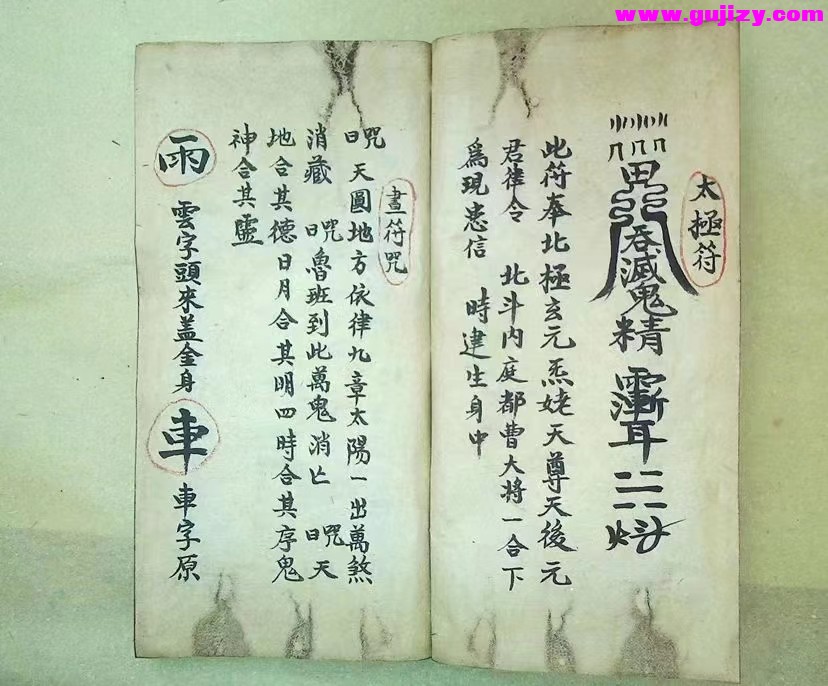 www.gujizy.com
太極符
吞滅鬼精
耳
此符奉北極玄元炁姥天尊天後元
君律令 北斗内庭都曹大将一合下
為現患信 時建生身中
畫符咒
咒 天圓地方依律九章太陽一出萬煞
消藏 咒魯班到此萬鬼消亡 咒天
地合其德日月合其明四時合其序鬼
神合其靈
雨 雲字頭來盖金身 車 車字原